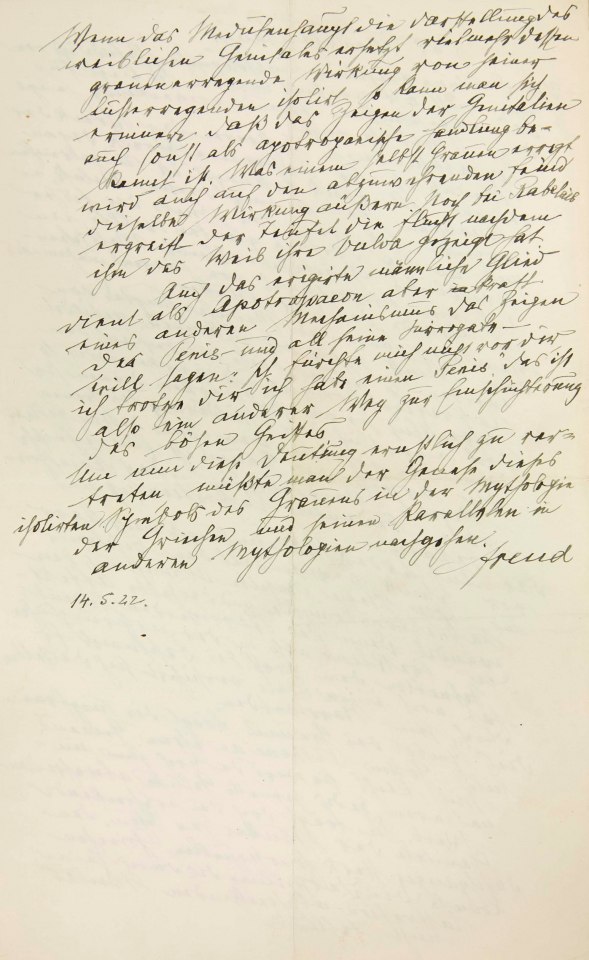 Wenn das Medusenhaupt die Darstellung des
weiblichen Genitales ersetzt vielmehr dessen
grauenerregende Wirkung von seiner
lusterregenden isolirt so kann man sich
erinnern daß das Zeigen der Genitalien
auch sonst als apotropaeische Handlung be-
kannt ist. Was einem selbst Grauen erregt
wird auch auf den abzuwehrenden Feind
dieselbe Wirkung äußern. Noch bei Rabelais
ergreift der Teufel die Flucht nachdem
ihm das Weib ihre Vulva gezeigt hat.
Auch das erigirte männliche Glied
dient als Apotropaeon aber in Kraft
eines anderen Mechanismus das Zeigen
des Penis - und all seine Surrogate -
will sagen: Ich fürchte mich nicht vor dir
ich trotze dir ich habe einen Penis" das ist
also ein anderer Weg zur Einschüchterung
des bösen Geistes
Um nun diese Deutung ernstlich zu ver=
treten müßte man der Genese dieses
isolirten Symbols des Grauens in der Mythologie
der Griechen und seinen Parallelen in
anderen Mythologien nachgehen.
Freud
14.5.22.